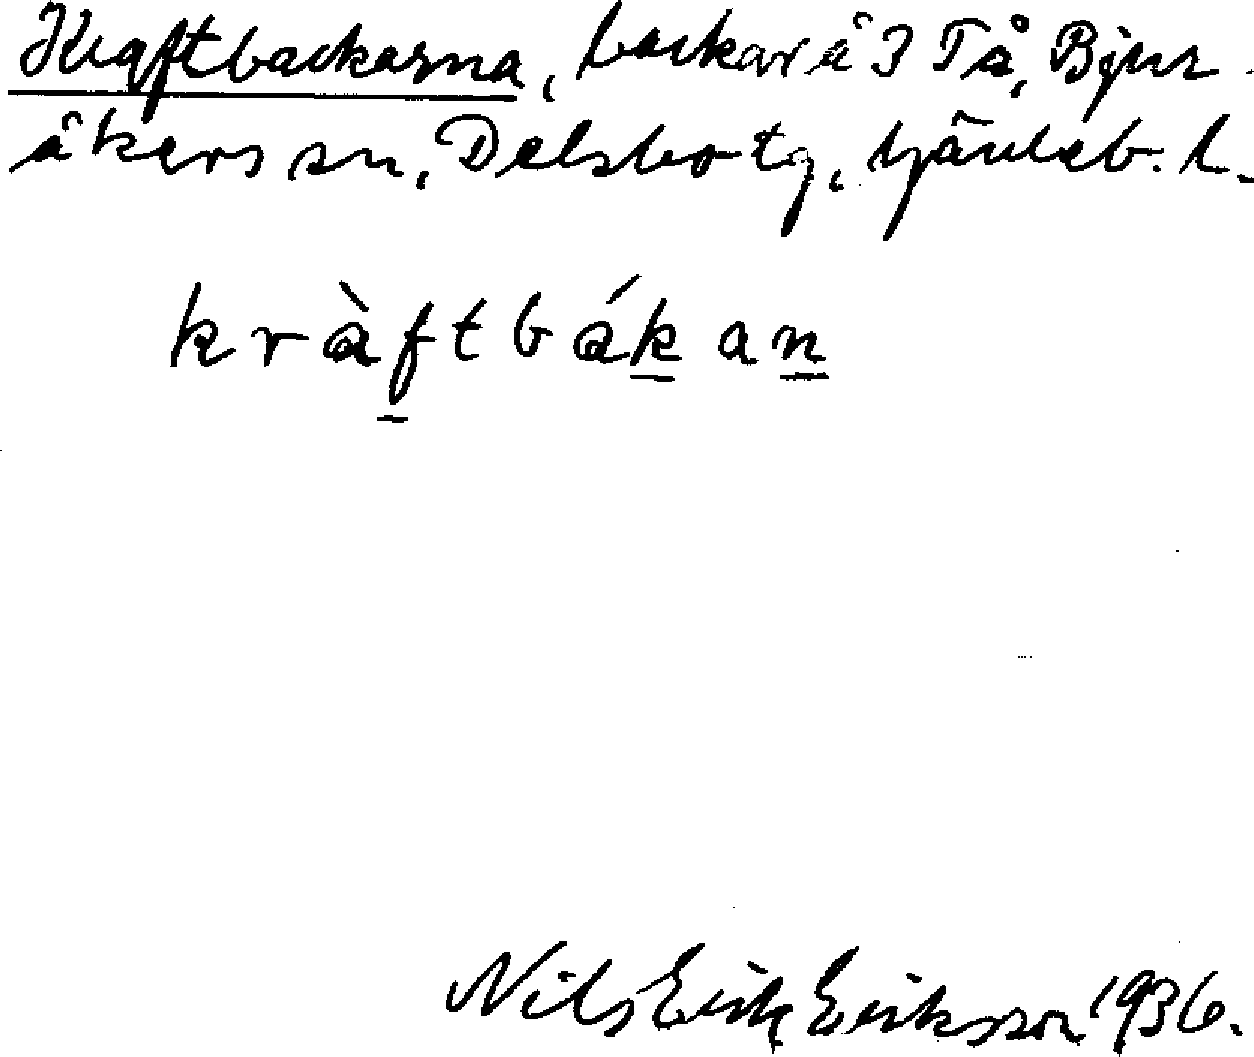 Kraftbackarna, backar å 3 Tå, Bjur-
åkers sn, Delsbo tg, Gävleb. l.
kràftbákan
Nils Erik Eriksson 1936.